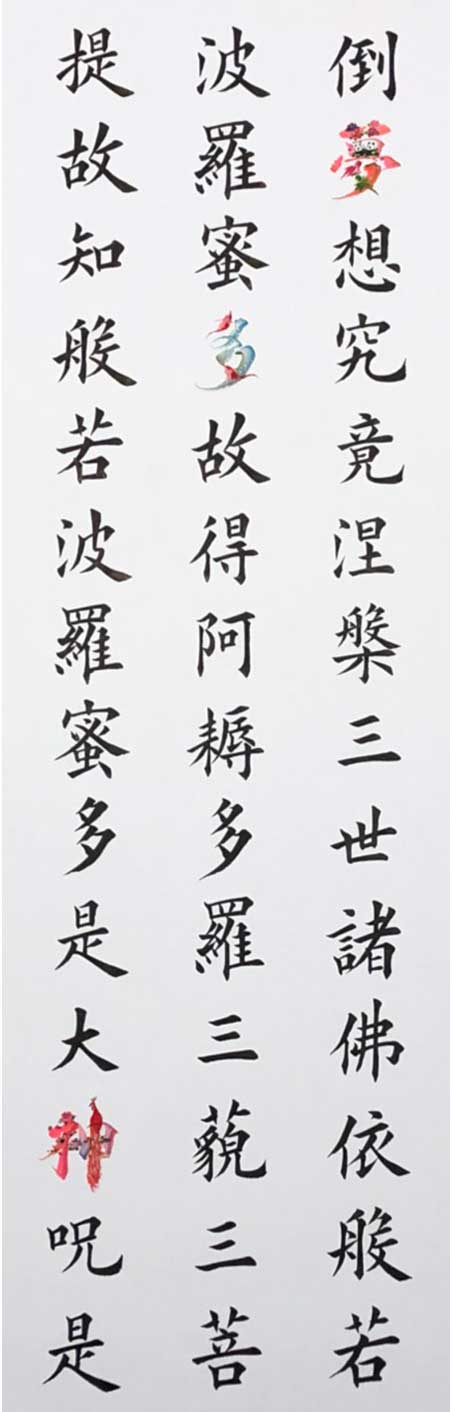 倒夢想究竟涅槃三世諸佛依般若
波羅蜜多故得阿耨多羅三藐三菩
提故知般若波羅蜜多是大神呪是